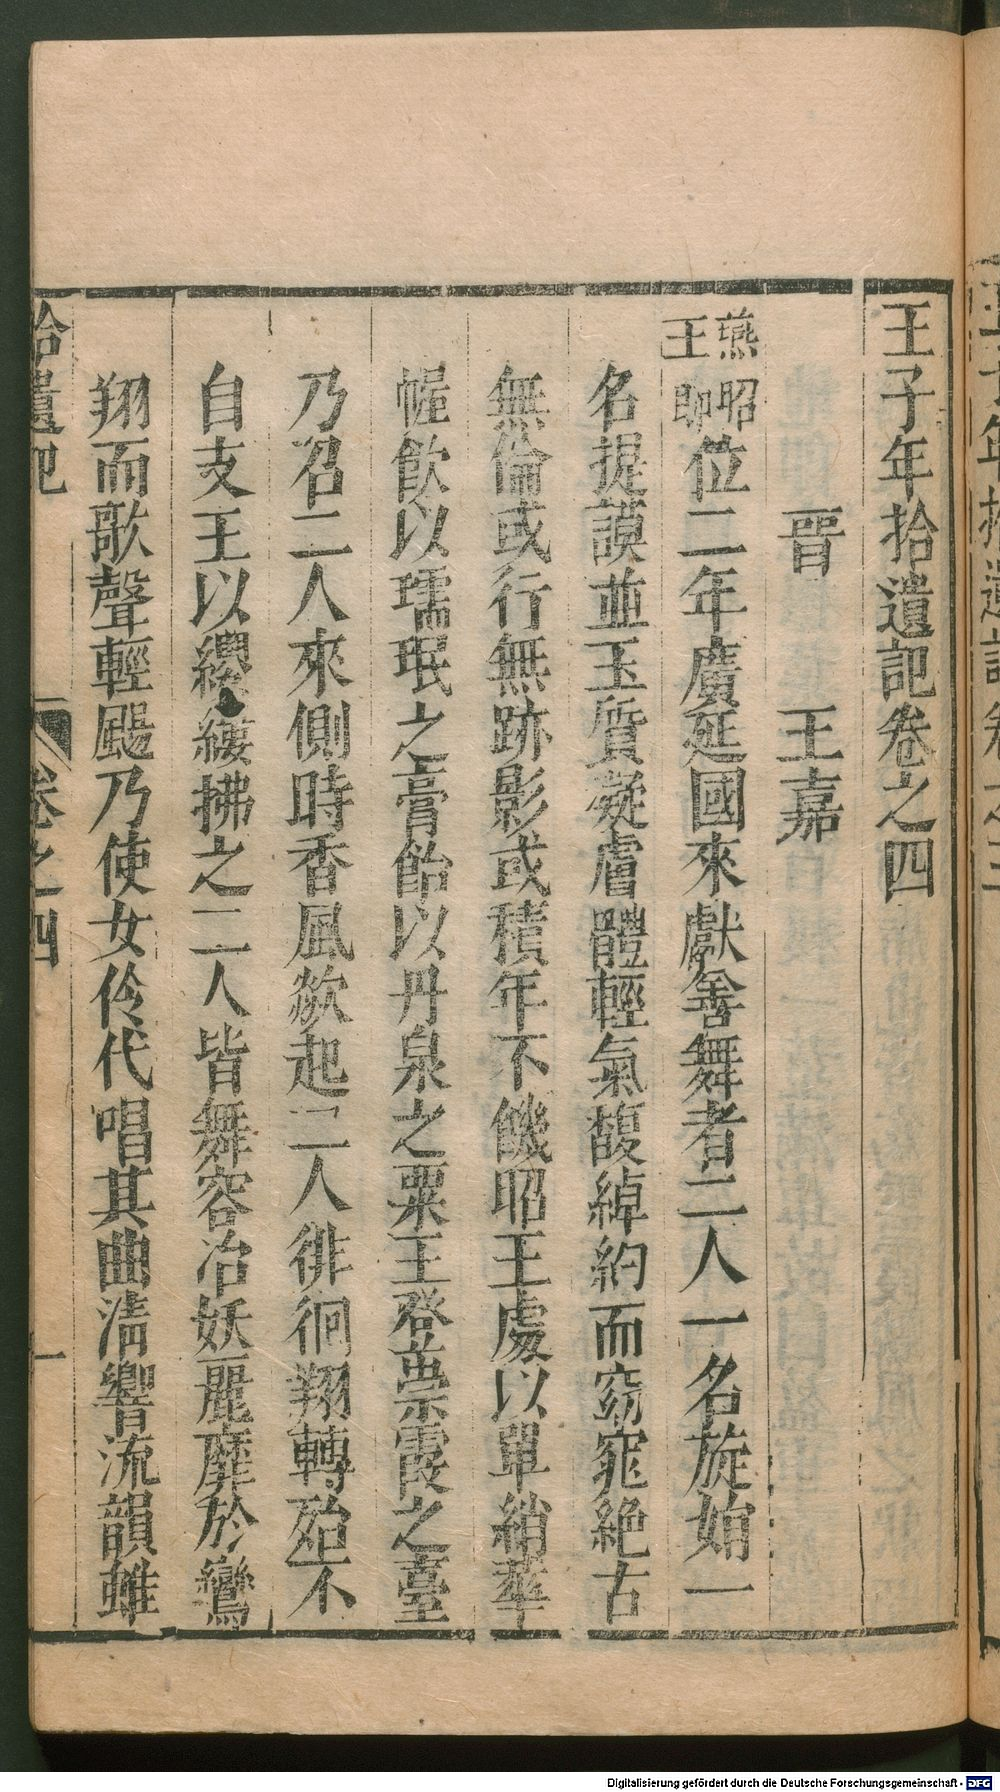 王子年拾遺記卷之四
晉　王嘉
燕昭王即位二年廣延國來獻善舞者二人一名旋娟一
名提謨並玉質凝膚體輕氣馥綽約而窈窕絕古
無倫或行無跡影或積年不饑昭王處以單綃華
幄飲以瓀珉之膏飴以丹泉之粟王登崇霞之臺
乃召二人來側時香風歘起二人徘徊翔轉殆不
自支王以纓縷拂之二人皆舞容冶妖麗靡於鸞
翔而歌聲輕颺乃使女伶代唱其曲清響流韻雖
拾遺記　卷之四　一
Digitalisierung gefördert durch die Deutsche Forschungsgemeinschaft - DFG